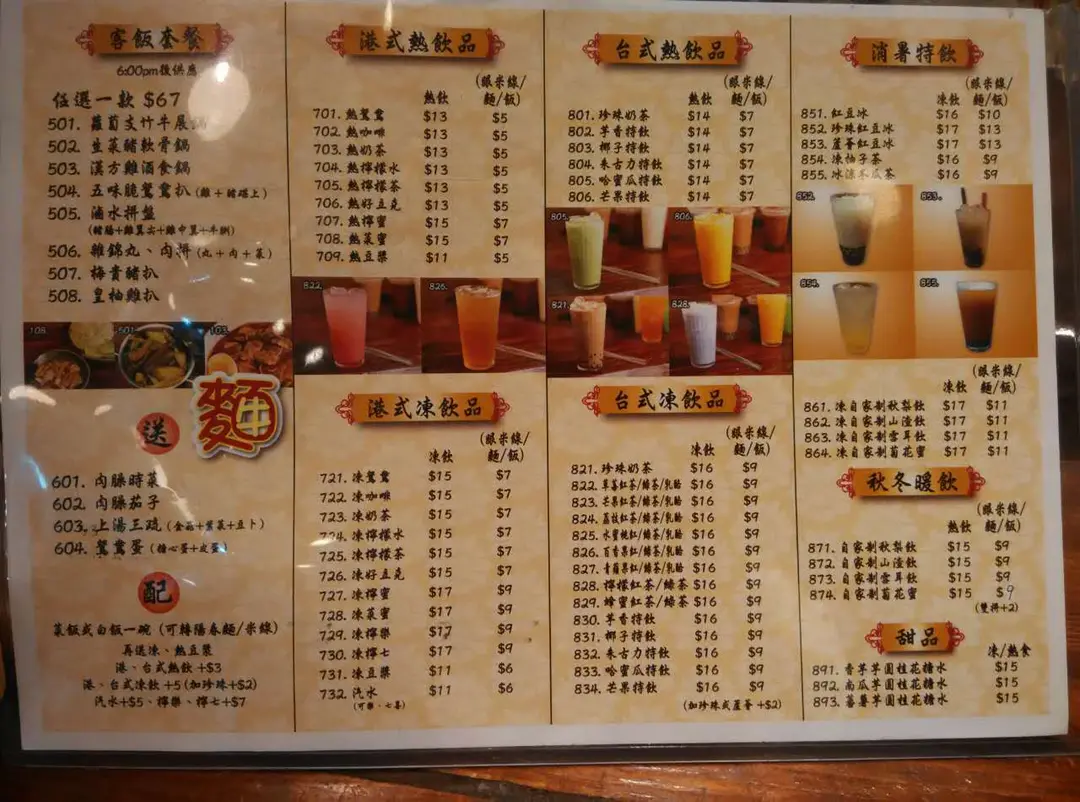 客飯套餐
6:00pm後供應
任選一款 $67
501. 蘿蔔支竹牛展鍋
502. 韮菜豬軟骨鍋
503. 漢方雞酒食鍋
504. 五味脆鴛鴦扒 (雞+豬碟上)
505. 滷水拼盤
506. 雜錦丸、肉拼 (丸+肉+菜)
507. 梅貴豬扒
508. 皇柚雞扒
108.
601.
103.
麵
送
601. 肉臊時菜
602. 肉臊茄子
603. 上湯三蔬 (金菇+紫菜+豆卜)
604. 鴛鴦蛋 (糖心蛋+皮蛋)
配
菜飯或白飯一碗 (可轉陽春麵/米線)
再送凍、熱豆漿
港、台式熱飲 +$3
港、台式凍飲 +5 (加珍珠+$2)
汽水+$5、檸樂、檸七+$7
港式熱飲品
熱飲 (跟米線/麵/飯)
701. 熱鴛鴦 $13 $5
702. 熱咖啡 $13 $5
703. 熱奶茶 $13 $5
704. 熱檸檬水 $13 $5
705. 熱檸檬茶 $13 $5
706. 熱好立克 $13 $5
707. 熱檸蜜 $15 $7
708. 熱菜蜜 $15 $7
709. 熱豆漿 $11 $5
822.
826.
港式凍飲品
凍飲 (跟米線/麵/飯)
721. 凍鴛鴦 $15 $7
722. 凍咖啡 $15 $7
723. 凍奶茶 $15 $7
724. 凍檸檬水 $15 $7
725. 凍檸檬茶 $15 $7
726. 凍好立克 $15 $7
727. 凍檸蜜 $17 $9
728. 凍菜蜜 $17 $9
729. 凍檸樂 $17 $9
730. 凍檸七 $17 $9
731. 凍豆漿 $11 $6
732. 汽水 $11 $6
(可樂、七喜)
台式熱飲品
熱飲 (跟米線/麵/飯)
801. 珍珠奶茶 $14 $7
802. 芋香特飲 $14 $7
803. 椰子特飲 $14 $7
804. 朱古力特飲 $14 $7
805. 哈蜜瓜特飲 $14 $7
806. 芒果特飲 $14 $7
805.
806.
821.
828.
台式凍飲品
凍飲 (跟米線/麵/飯)
821. 珍珠奶茶 $16 $9
822. 草莓紅茶/綠茶/乳酪 $16 $9
823. 芒果紅茶/綠茶/乳酪 $16 $9
824. 荔枝紅茶/綠茶/乳酪 $16 $9
825. 水蜜桃紅/綠茶/乳酪 $16 $9
826. 百香果紅/綠茶/乳酪 $16 $9
827. 青蘋果紅/綠茶/乳酪 $16 $9
828. 檸檬紅茶/綠茶 $16 $9
829. 蜂蜜紅茶/綠茶 $16 $9
830. 芋香特飲 $16 $9
831. 椰子特飲 $16 $9
832. 朱古力特飲 $16 $9
833. 哈蜜瓜特飲 $16 $9
834. 芒果特飲 $16 $9
(加珍珠或蘆薈 +$2)
消暑特飲
凍飲 (跟米線/麵/飯)
851. 紅豆冰 $16 $10
852. 珍珠紅豆冰 $17 $13
853. 蘆薈紅豆冰 $17 $13
854. 凍柚子茶 $16 $9
855. 冰涼冬瓜茶 $16 $9
852.
853.
854.
855.
凍飲 (跟米線/麵/飯)
861. 凍自家制秋梨飲 $17 $11
862. 凍自家制山渣飲 $17 $11
863. 凍自家制雪耳飲 $17 $11
864. 凍自家制菊花蜜 $17 $11
秋冬暖飲
熱飲 (跟米線/麵/飯)
871. 自家制秋梨飲 $15 $9
872. 自家制山渣飲 $15 $9
873. 自家制雪耳飲 $15 $9
874. 自家制菊花蜜 $15 $9
(雙拼+2)
甜品
凍/熱食
891. 香芋芋圓桂花糖水 $15
892. 南瓜芋圓桂花糖水 $15
893. 蕃薯芋圓桂花糖水 $15